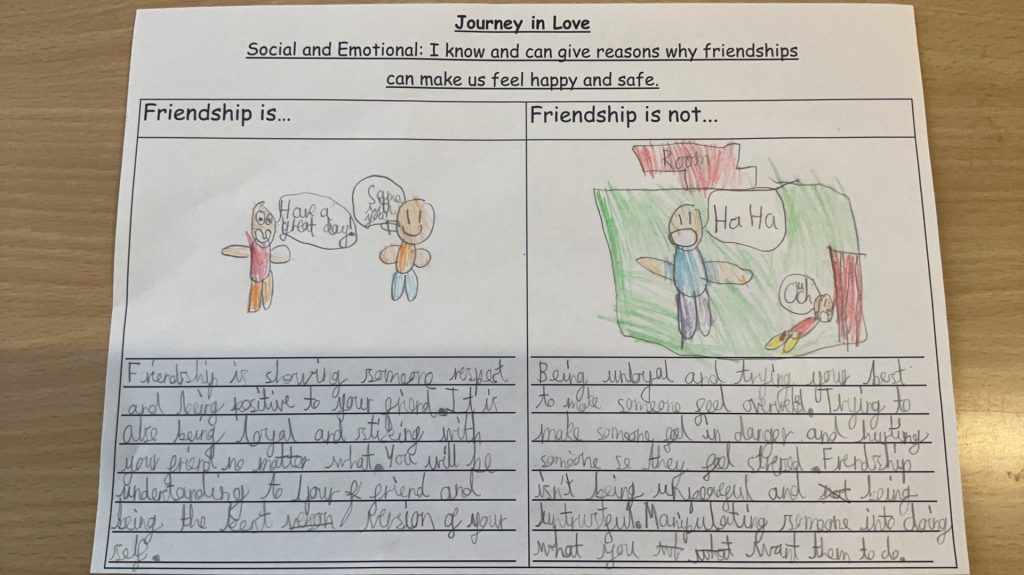 Journey in Love
Social and Emotional: I know and can give reasons why friendships
can make us feel happy and safe.
Friendship is...
Have a
great day!
Same
Friendship is slowing someone respect
and being positive to your friend. It is
also being loyal and stiking with
your friend no matter what. You will be
understanding to your friend and
being the best version of your
self.
Friendship is not...
Room
Ha Ha
Ouch
Being unloyal and trying your best
to make someone feel overweled. Trying to
make someone feel in danger and hurting
someone so they feel stresed. Frendship
isn't being unpeaceful and being
Manipulating someone into doing
what you want them to do.